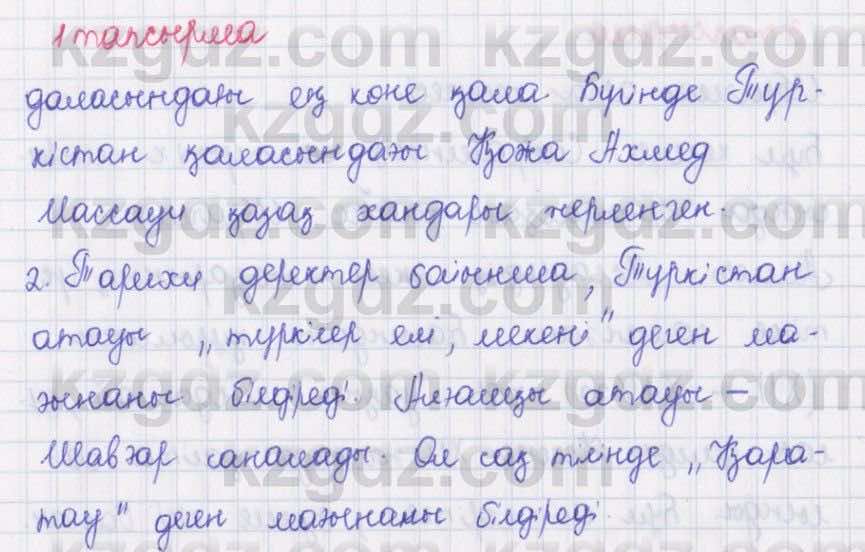 1 тапсырма
даласындағы ең көне қала Бүгінде Түр-
кістан қаласындағы Қожа Ахмед
Массауи қазақ хандары жерленген.
2. Тарихи деректер бойынша, Түркістан
атауы „түркілер елі, мекені" деген ма-
ғынаны білдіреді. Алғашқы атауы –
Шавғар саналады. Ол сақ тілінде „Қара-
тау" деген мағынаны білдіреді.
kzgdz.com